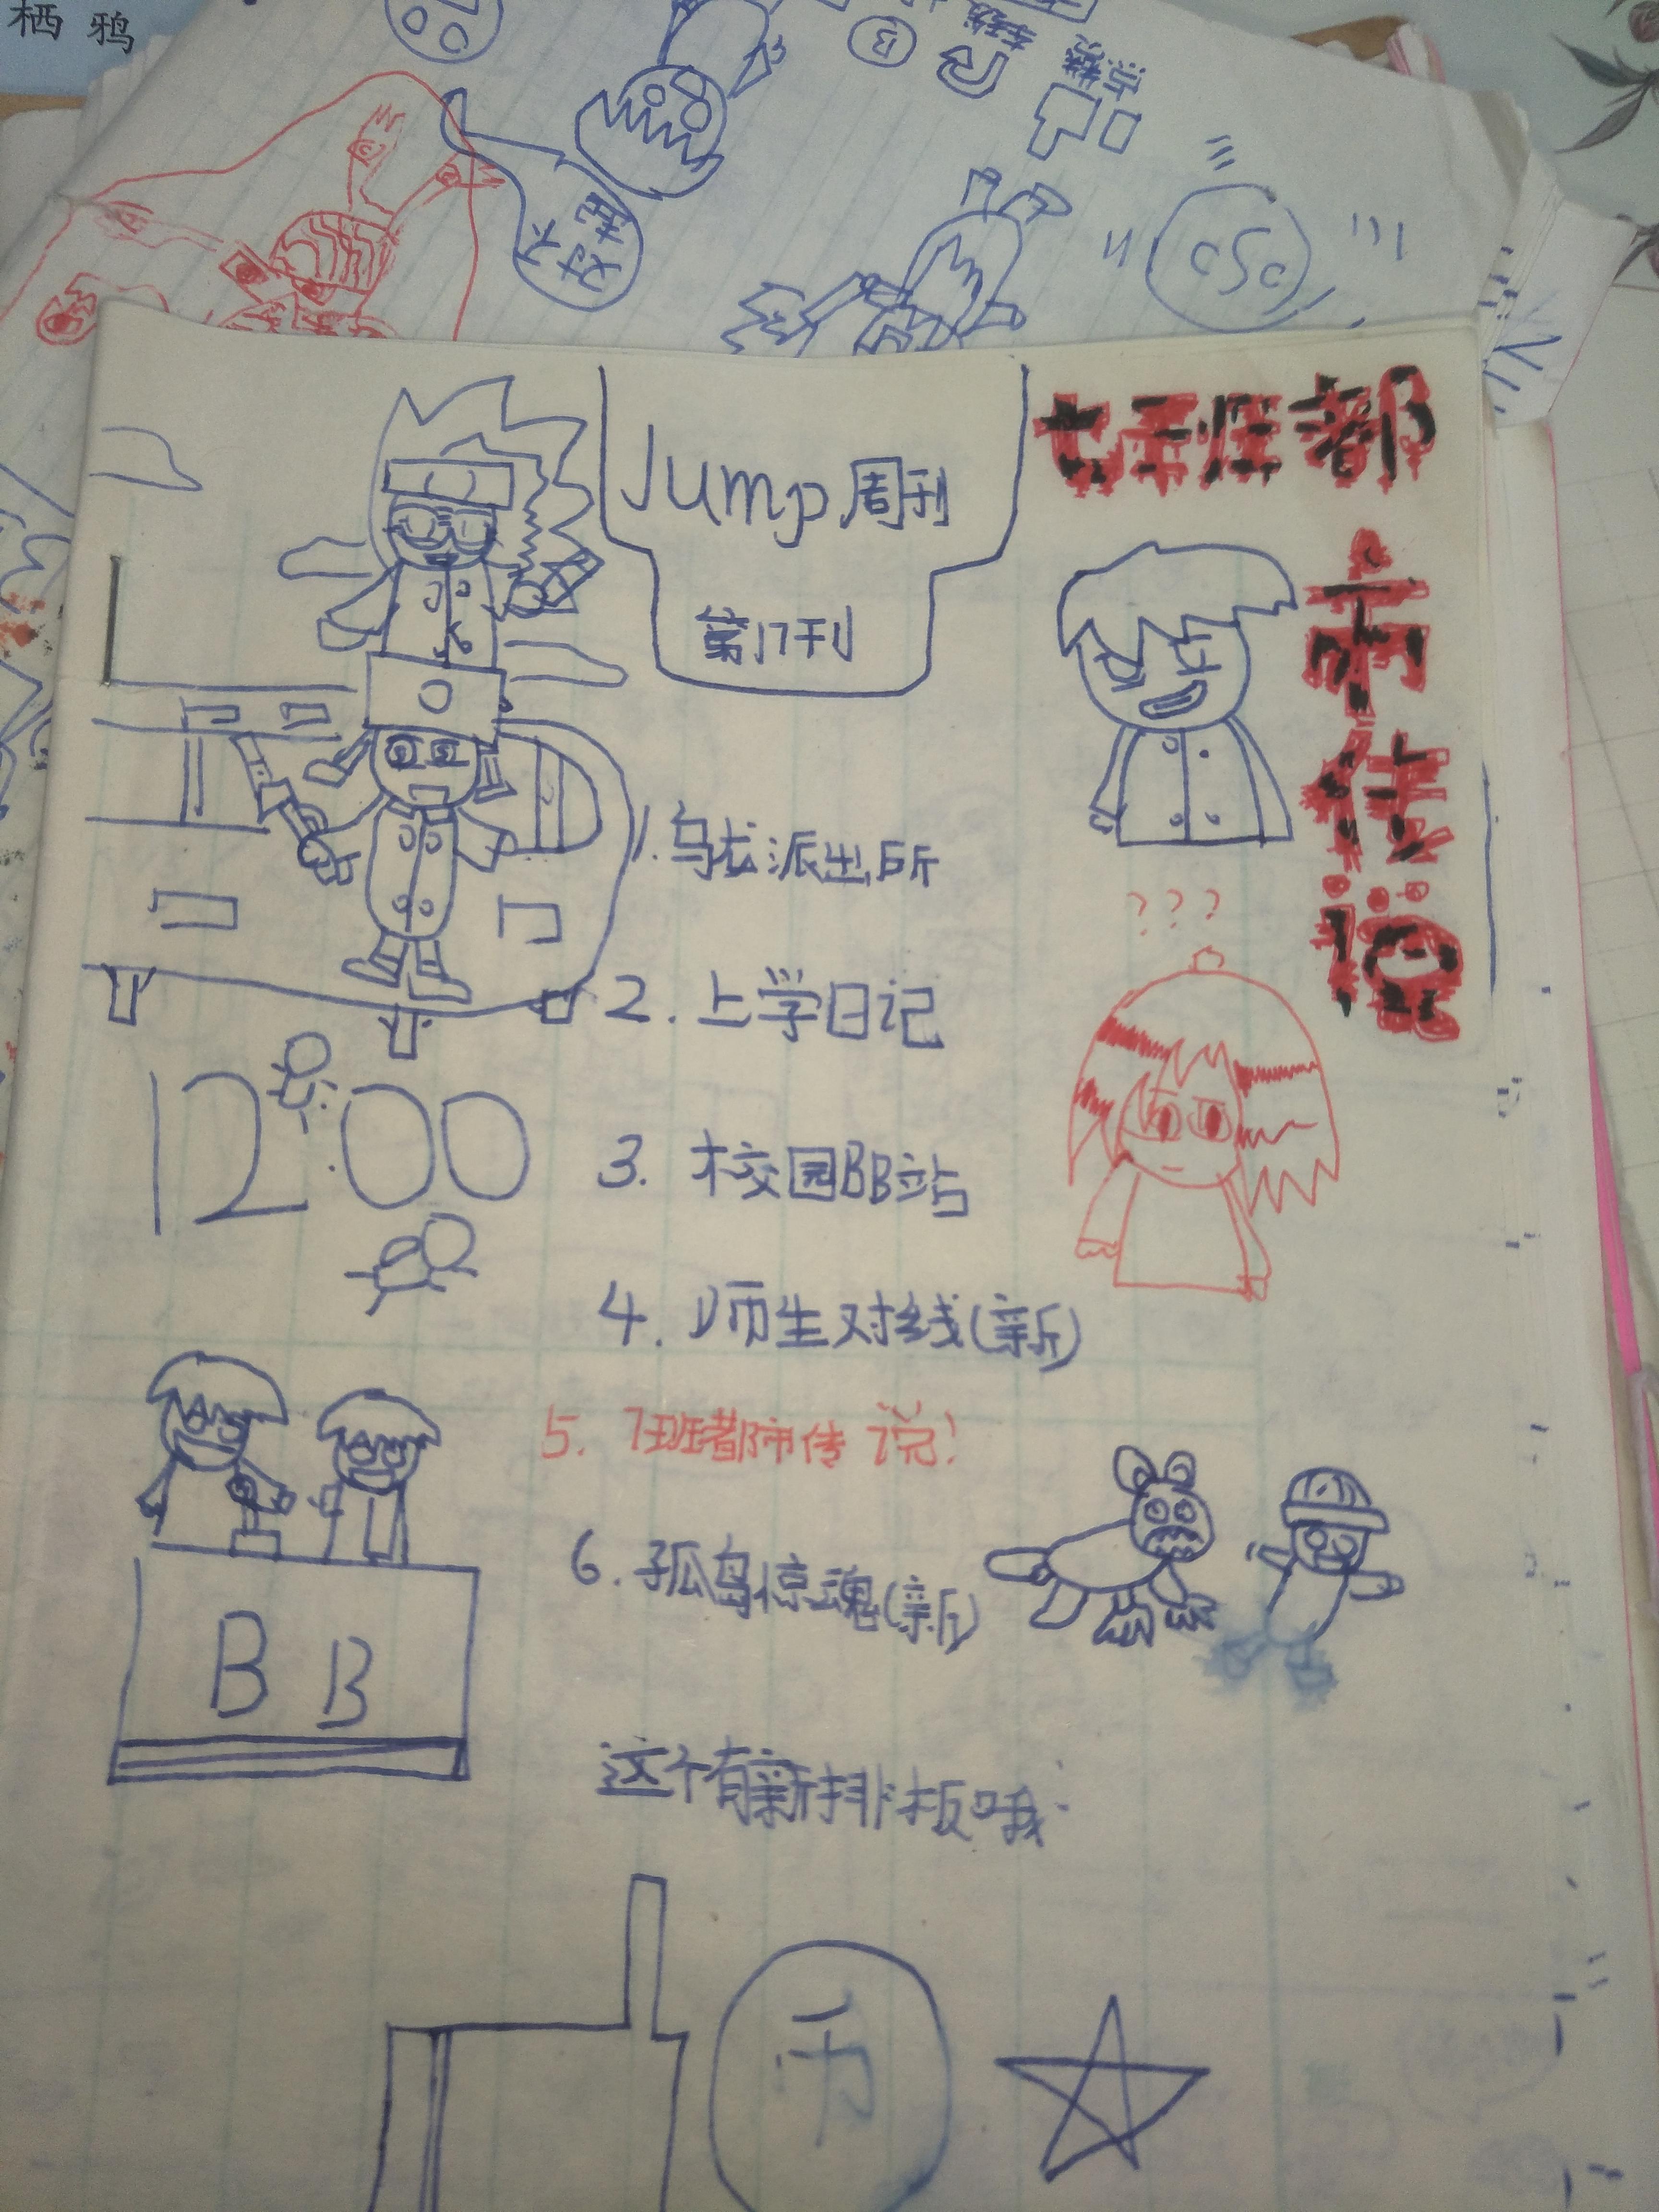 栖鸦
对不起
Jump周刊
第17刊
七班都
市传说
1.乌龙派出所
2.上学日记
???
12:00
3.校园BB站
4.师生对线(新)
5.7班都市传说!
6.孤岛惊魂(新)
BB
这个有新排板哦
币